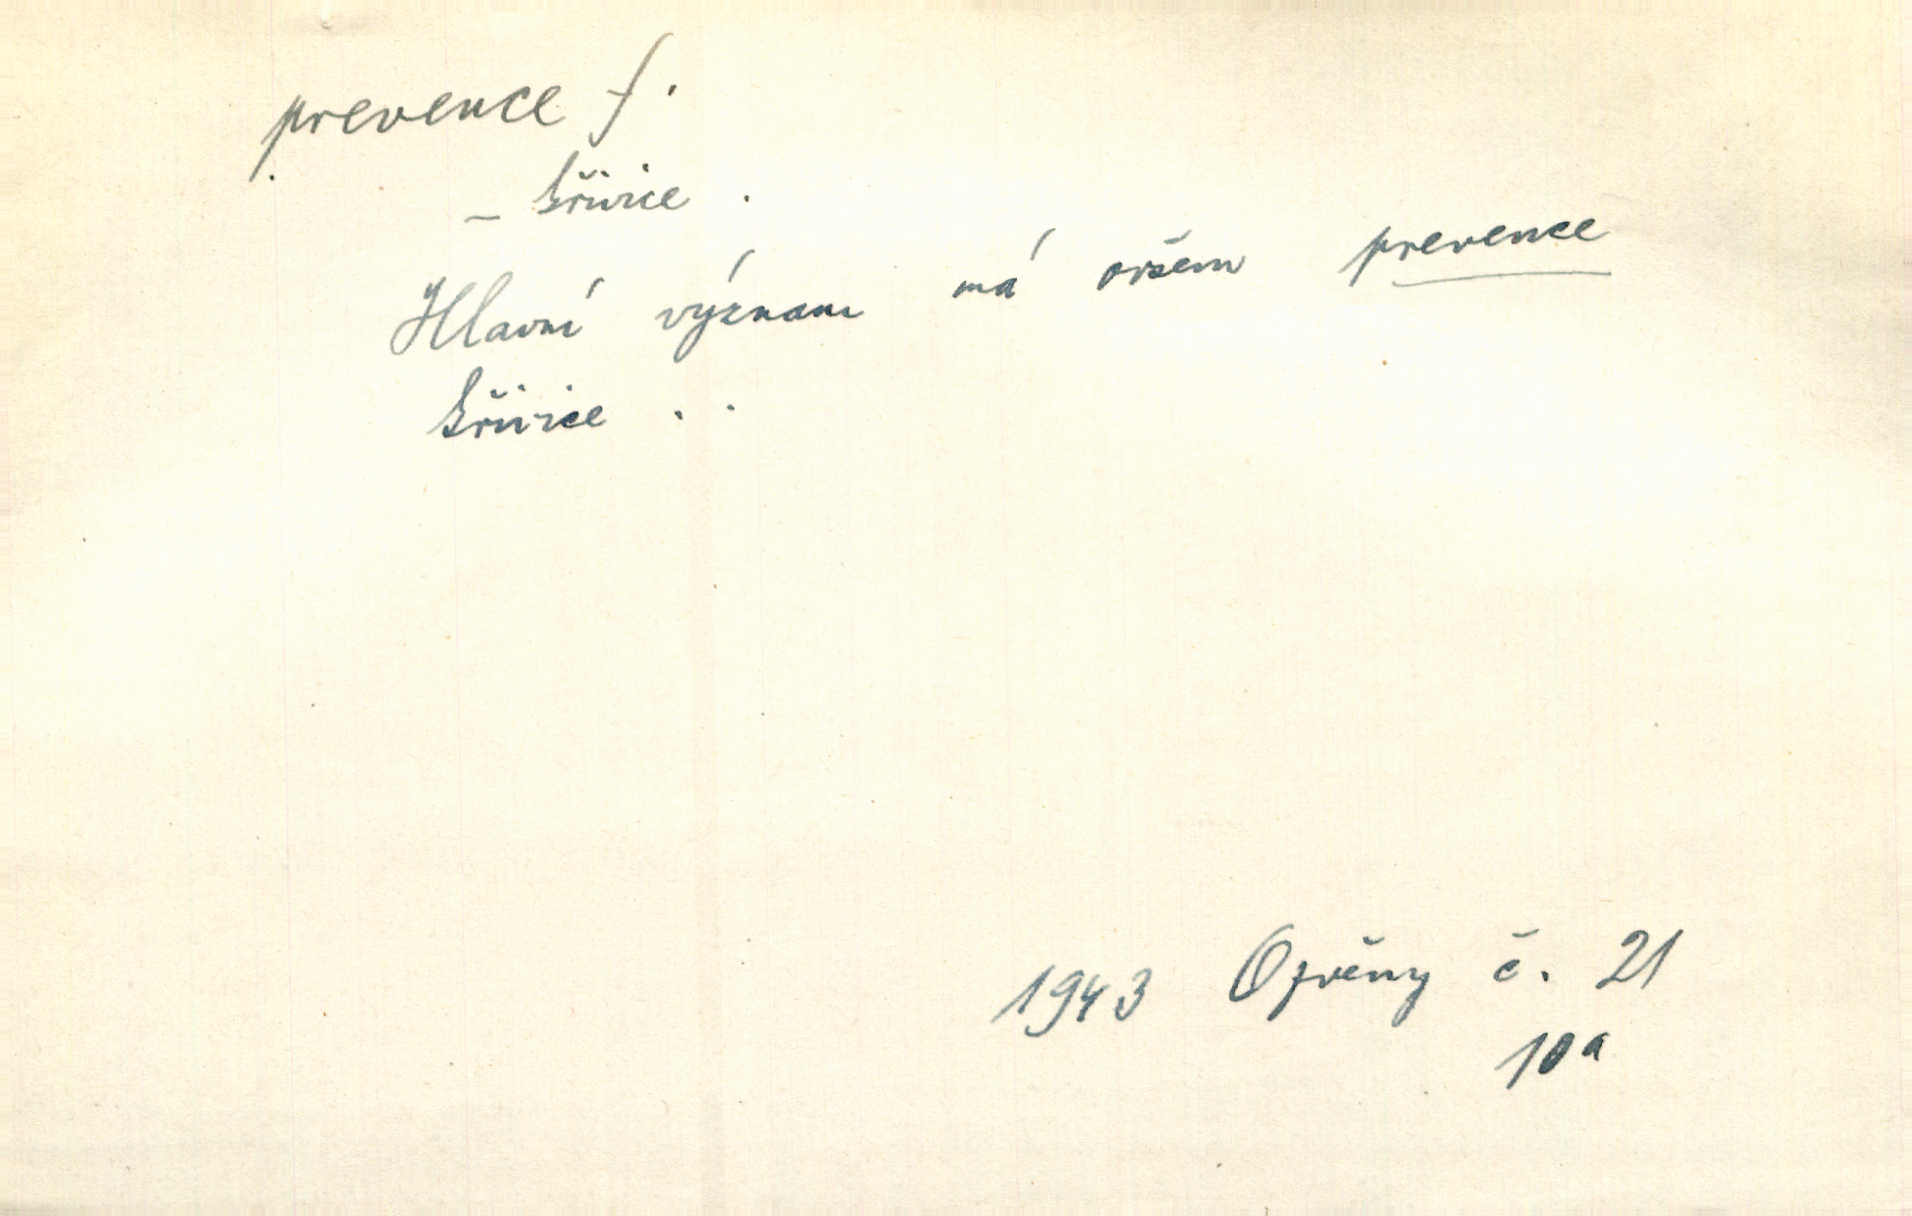 prevence f.
– křivice .
Hlavní význam má ovšem prevence
křivice . .
1943 Ozvěny č. 21
10a